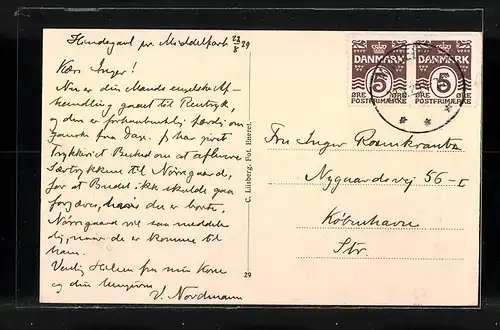 Hindsgavl pr Middelfart 23/8 29
Kære Inger!
Nu er din Mands engelske Af-
handling gaaet til Rentryk,
og den er forhaabentlig færdig om
ganske faa Dage. Jeg har givet
Trykkeriet Besked om at aflevere
Særtrykkene til Nørregaard,
for at Budet ikke skulde gaa
forgæves, hvis der er borte.
Nørregaard vil saa meddele
dig, naar de er komne til
ham.
Venlig Hilsen fra min Kone
og din hengivne
V. Nordmann
C. Liisberg. Fot. Eneret.
29
DANMARK
5
ØRE ØRE
POSTFRIMÆRKE
DANMARK
5
ØRE ØRE
POSTFRIMÆRKE
Fru Inger Rosenkrantz
Nygaardsvej 56-I
København
Str.